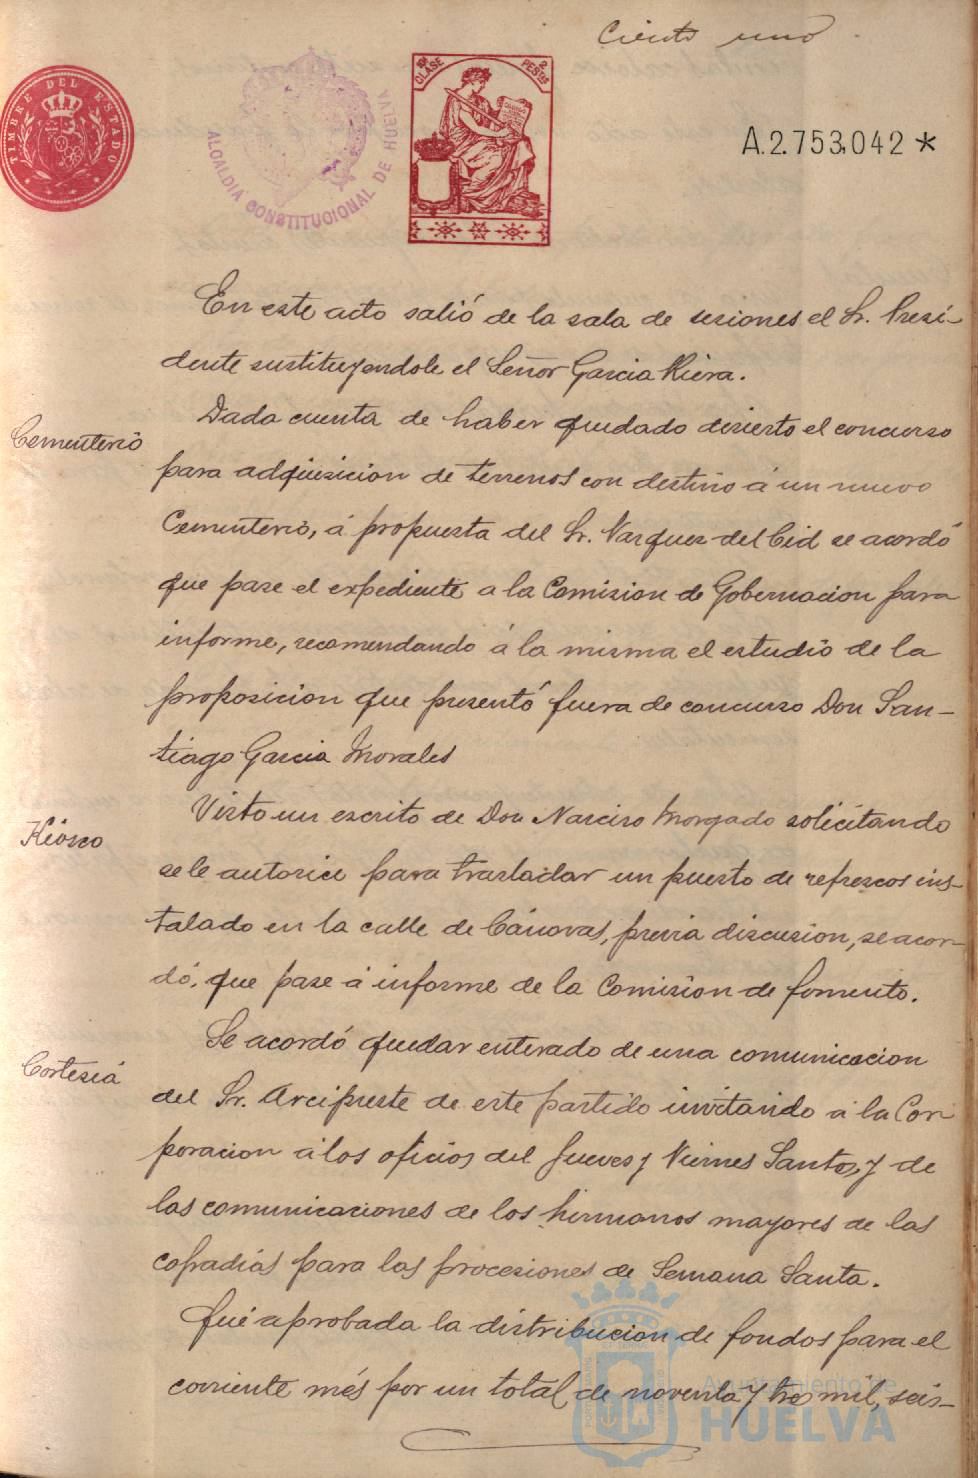 Ciento uno
TIMBRE DEL ESTADO
ALCALDIA CONSTITUCIONAL DE HUELVA
CLASE
2 PESTAS
A.2.753,042 *
En este acto salió de la sala de sesiones el Sr. Presi-
dente sustituyendole el Señor Garcia Riera.
Cementerio
Dada cuenta de haber quedado desierto el concurso
para adquisicion de terrenos con destino á un nuevo
Cementerio, á propuesta del Sr. Vazquez del Cid se acordó
que pase el expediente a la Comision de Gobernacion para
informe, recomendando á la misma el estudio de la
proposicion que presentó fuera de concurso Don San-
tiago Garcia Morales
Kiosco
Visto un escrito de Don Narciso Morgado solicitando
se le autorice para trasladar un puesto de refrescos ins-
talado en la calle de Cánovas, previa discusion, se acor-
dó, que pase á informe de la Comision de fomento.
Cortesia
Se acordó quedar enterado de una comunicacion
del Sr. Arcipreste de este partido invitando á la Cor-
poracion á los oficios del Jueves y Viernes Santos, y de
las comunicaciones de los hermanos mayores de las
cofradias para las procesiones de Semana Santa.
Fué aprobada la distribucion de fondos para el
corriente més por un total de noventa y tres mil, seis-
Ayuntamiento de
HUELVA